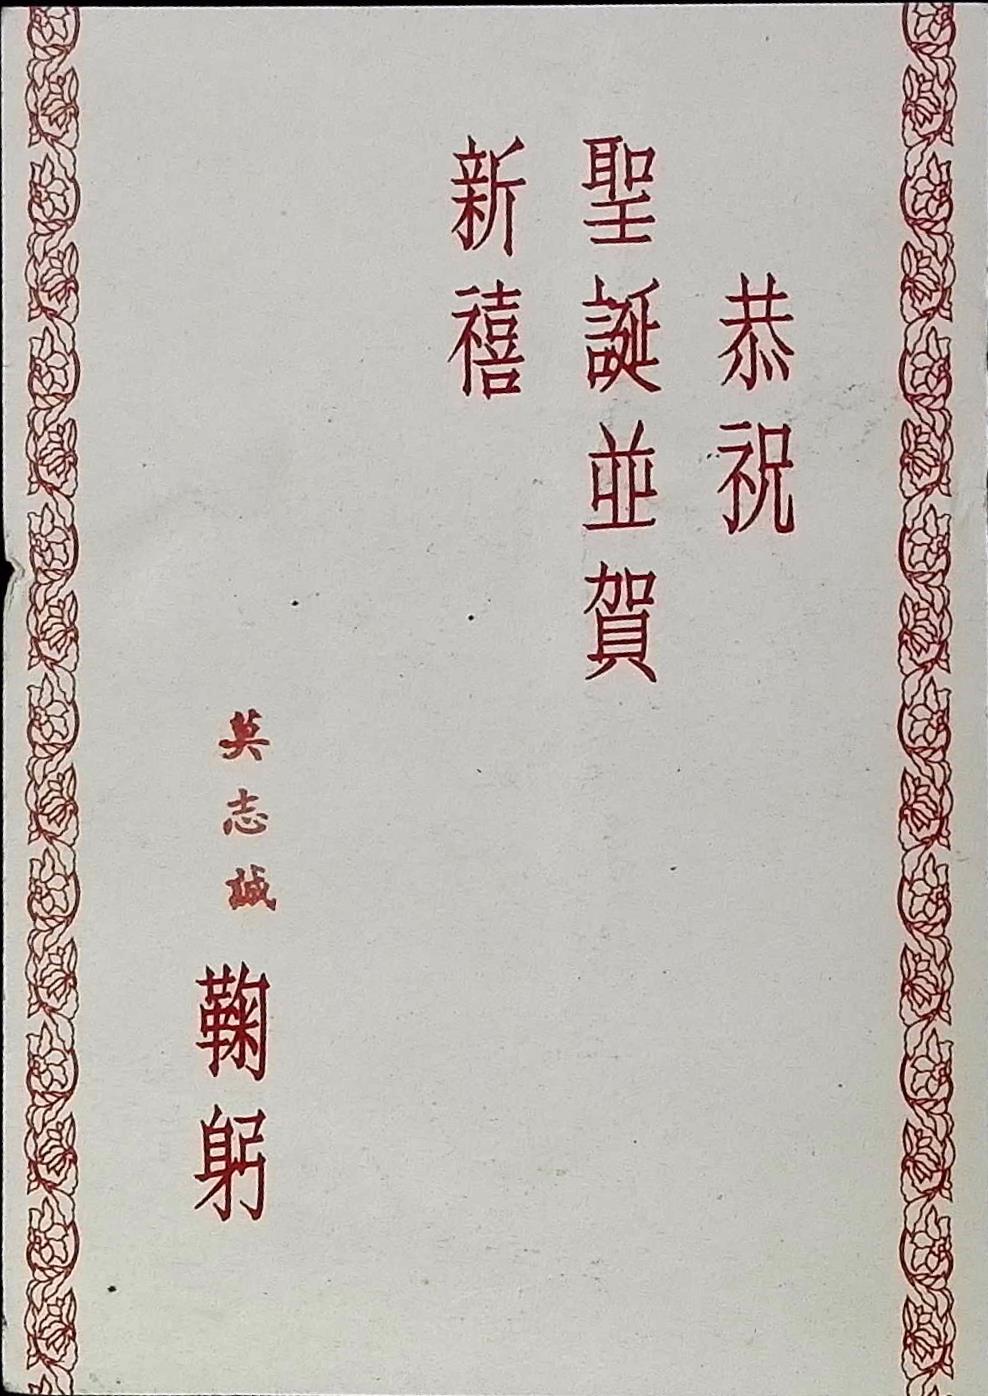 恭祝
聖誕並賀
新禧
莫志誠
鞠躬